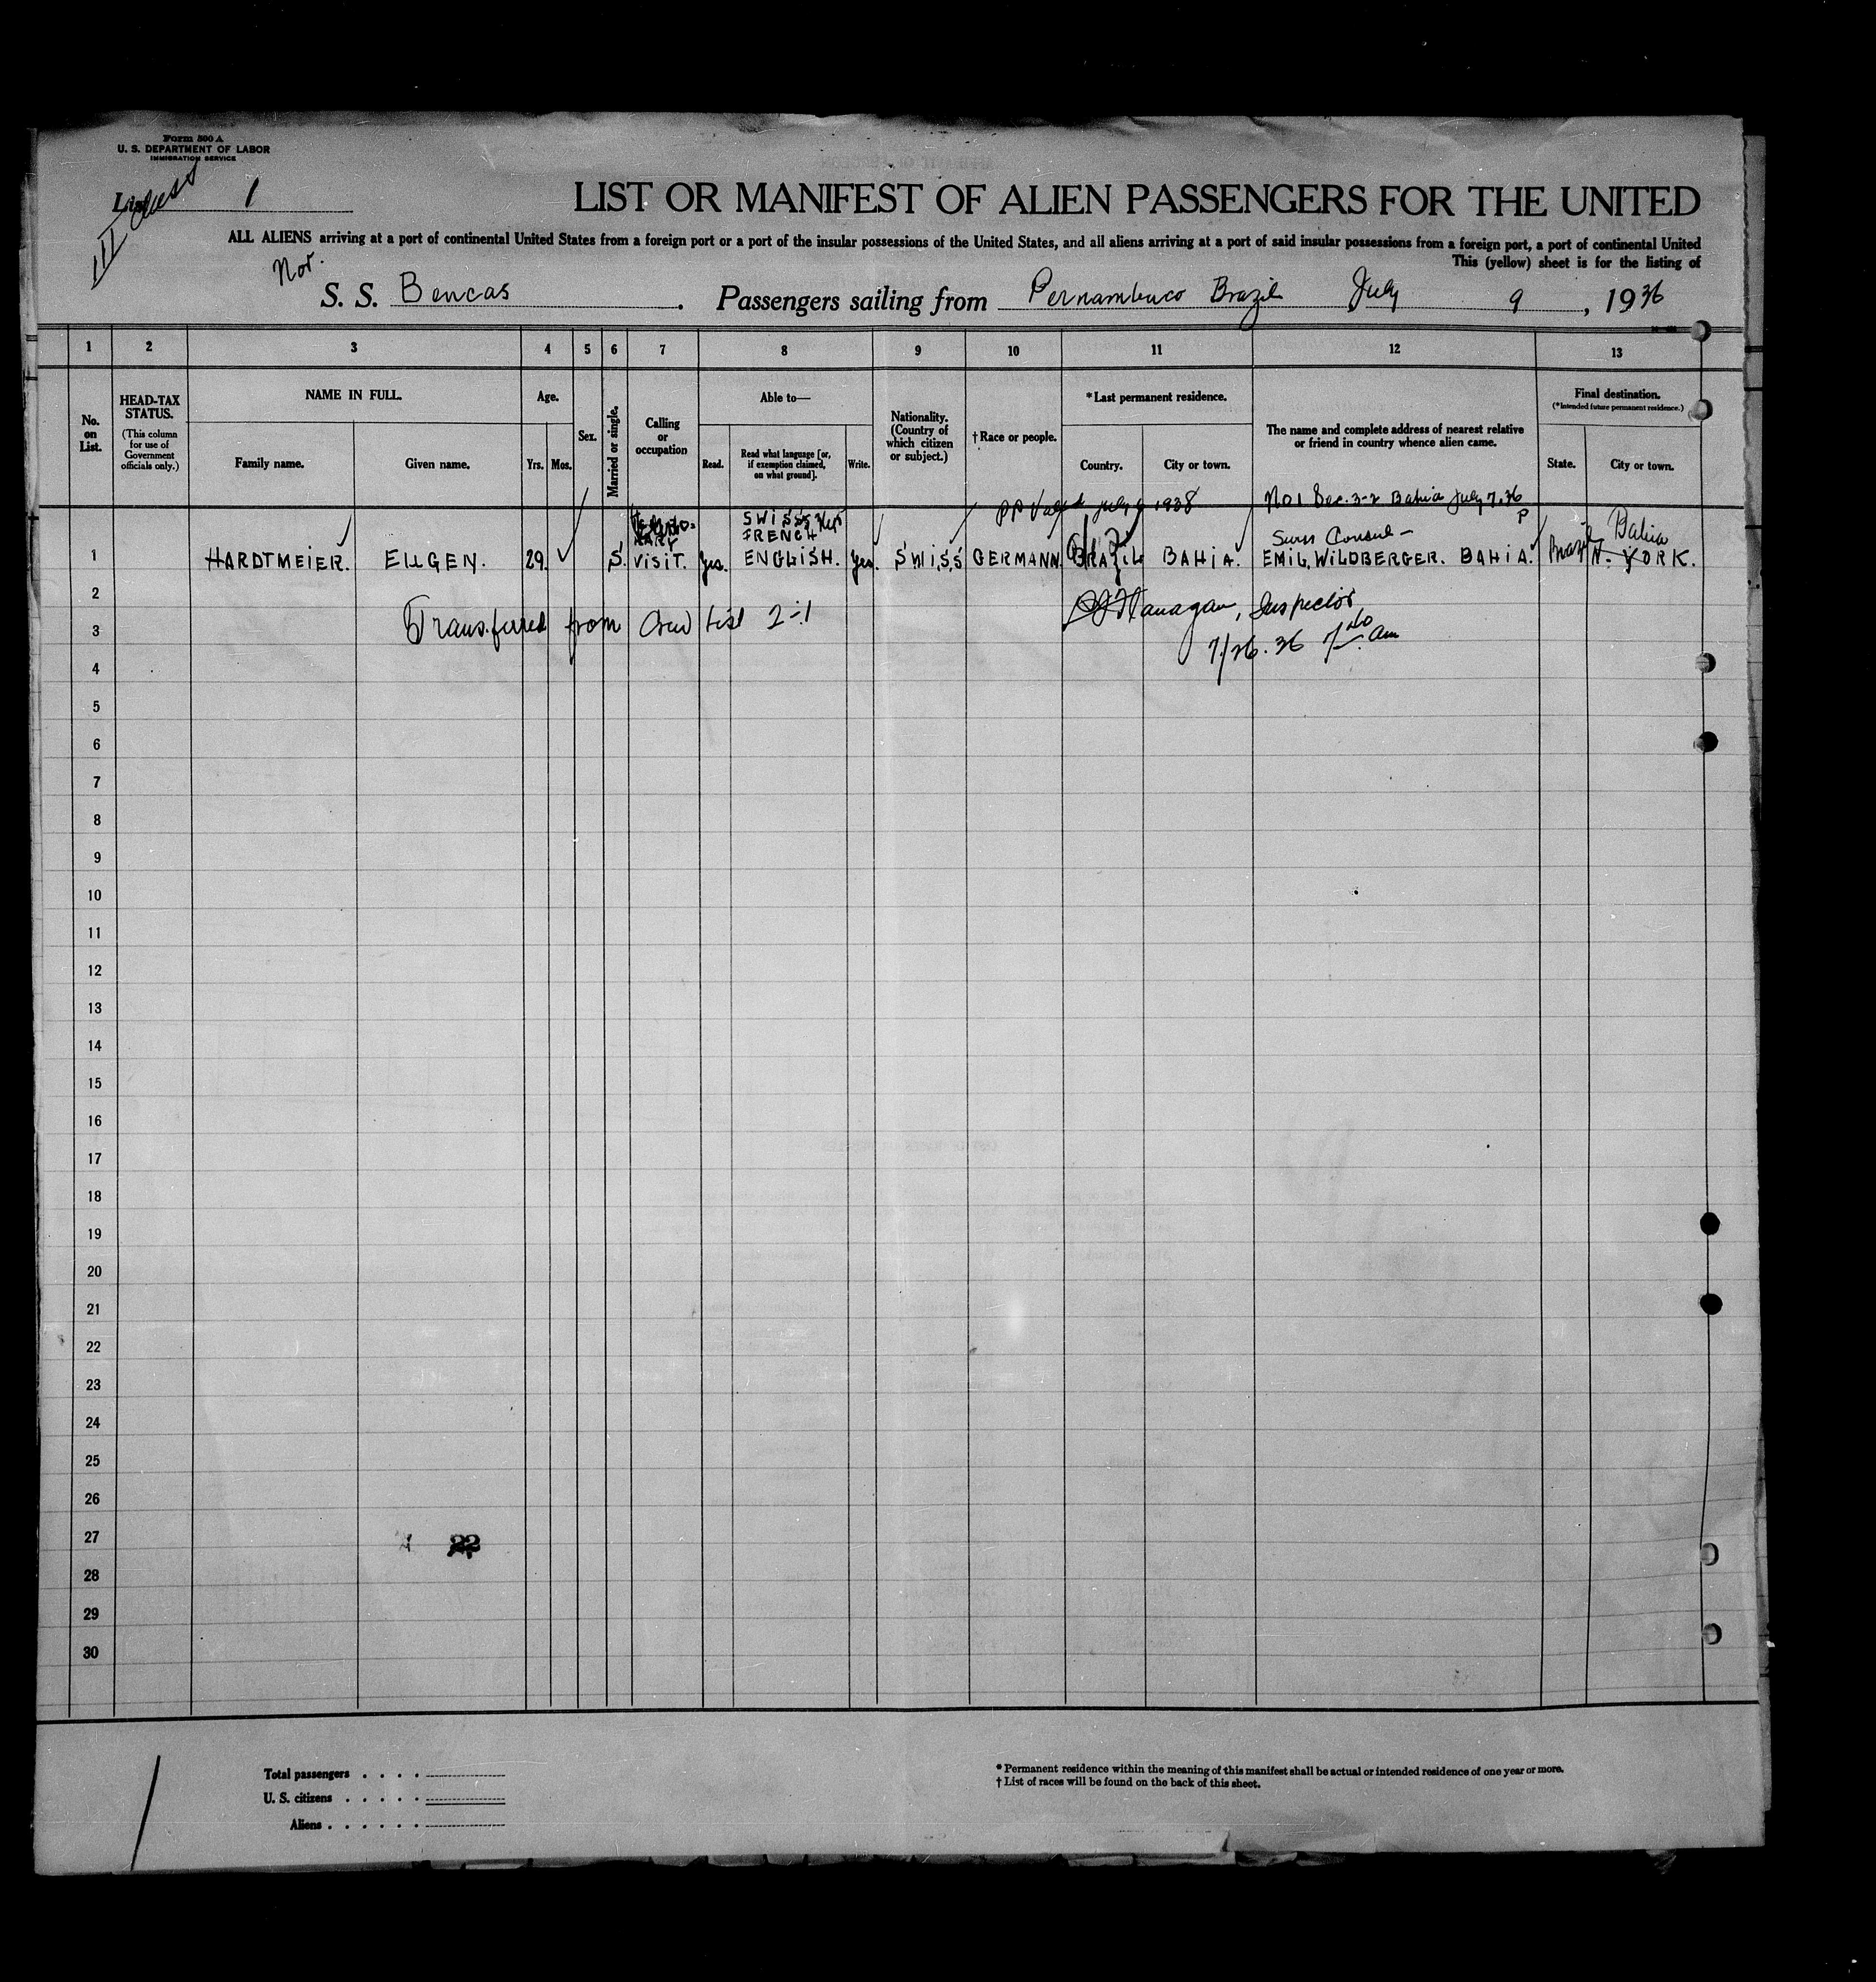 Form 500 A
U. S. DEPARTMENT OF LABOR
IMMIGRATION SERVICE
List 1
III Class
LIST OR MANIFEST OF ALIEN PASSENGERS FOR THE UNITED
ALL ALIENS arriving at a port of continental United States from a foreign port or a port of the insular possessions of the United States, and all aliens arriving at a port of said insular possessions from a foreign port, a port of continental United
This (yellow) sheet is for the listing of
Nor.
S. S. Bencas . Passengers sailing from Pernambuco Brazil July 9 , 1936
1 2 3 4 5 6 7 8 9 10 11 12 13
No. on List.
HEAD-TAX STATUS.
(This column for use of Government officials only.)
NAME IN FULL.
Family name. Given name.
Age.
Yrs. Mos.
Sex.
Married or single.
Calling or occupation
Able to—
Read. Read what language [or, if exemption claimed, on what ground]. Write.
Nationality. (Country of which citizen or subject.)
† Race or people.
*Last permanent residence.
Country. City or town.
The name and complete address of nearest relative or friend in country whence alien came.
Final destination.
(*Intended future permanent residence.)
State. City or town.
PP Valid July 9 1938 No1 Sec. 3-2 Bahia July 7. 36
P
SWISS
FRENCH Swiss Consul - Bahia
1 HARDTMEIER. EUGEN. 29. S. VISIT. Yes. ENGLISH. Yes. SWISS GERMANN. BRAZIL BAHIA. EMIL, WILDBERGER. BAHIA. Brazil N. YORK.
2
3 Transferred from Crew List 2-1 Flanagan, Inspector
7/26.36 am
4
5
6
7
8
9
10
11
12
13
14
15
16
17
18
19
20
21
22
23
24
25
26
27 22
28
29
30
Total passengers . . . .
U. S. citizens . . . . .
Aliens . . . . . .
* Permanent residence within the meaning of this manifest shall be actual or intended residence of one year or more.
† List of races will be found on the back of this sheet.